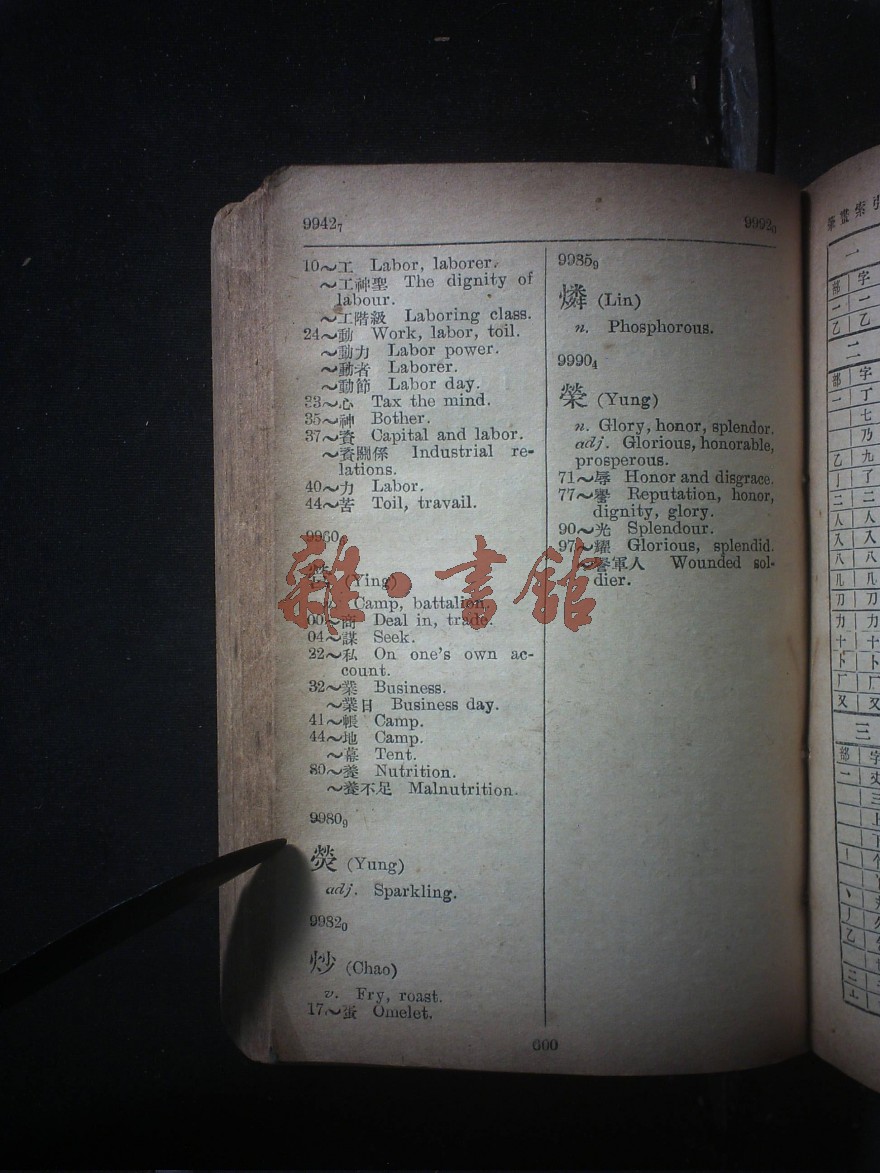 9942₇ 9992₀
10～工 Labor, laborer.
～工神聖 The dignity of
labour.
～工階級 Laboring class.
24～動 Work, labor, toil.
～動力 Labor power.
～動者 Laborer.
～動節 Labor day.
33～心 Tax the mind.
35～神 Bother.
37～資 Capital and labor.
～資關係 Industrial re-
lations.
40～力 Labor.
44～苦 Toil, travail.
9960
(Ying)
Camp, battalion.
00～商 Deal in, trade.
04～謀 Seek.
22～私 On one's own ac-
count.
32～業 Business.
～業日 Business day.
41～帳 Camp.
44～地 Camp.
～幕 Tent.
80～養 Nutrition.
～養不足 Malnutrition.
9980₉
熒 (Yung)
adj. Sparkling.
9982₀
炒 (Chao)
v. Fry, roast.
17～蛋 Omelet.
9985₉
燐 (Lin)
n. Phosphorous.
9990₄
榮 (Yung)
n. Glory, honor, splendor.
adj. Glorious, honorable,
prosperous.
71～辱 Honor and disgrace.
77～譽 Reputation, honor,
dignity, glory.
90～光 Splendour.
97～耀 Glorious, splendid.
～譽軍人 Wounded sol-
dier.
600
雜·書館
筆畫索引
一
部 字
一 一
乙 乙
二
部 字
一 丁
七
乃
乙 九
亅 了
二 二
人 人
入 入
八 八
儿 儿
刀 刀
力 力
十 十
卜 卜
厂 厂
又 又
三
部 字